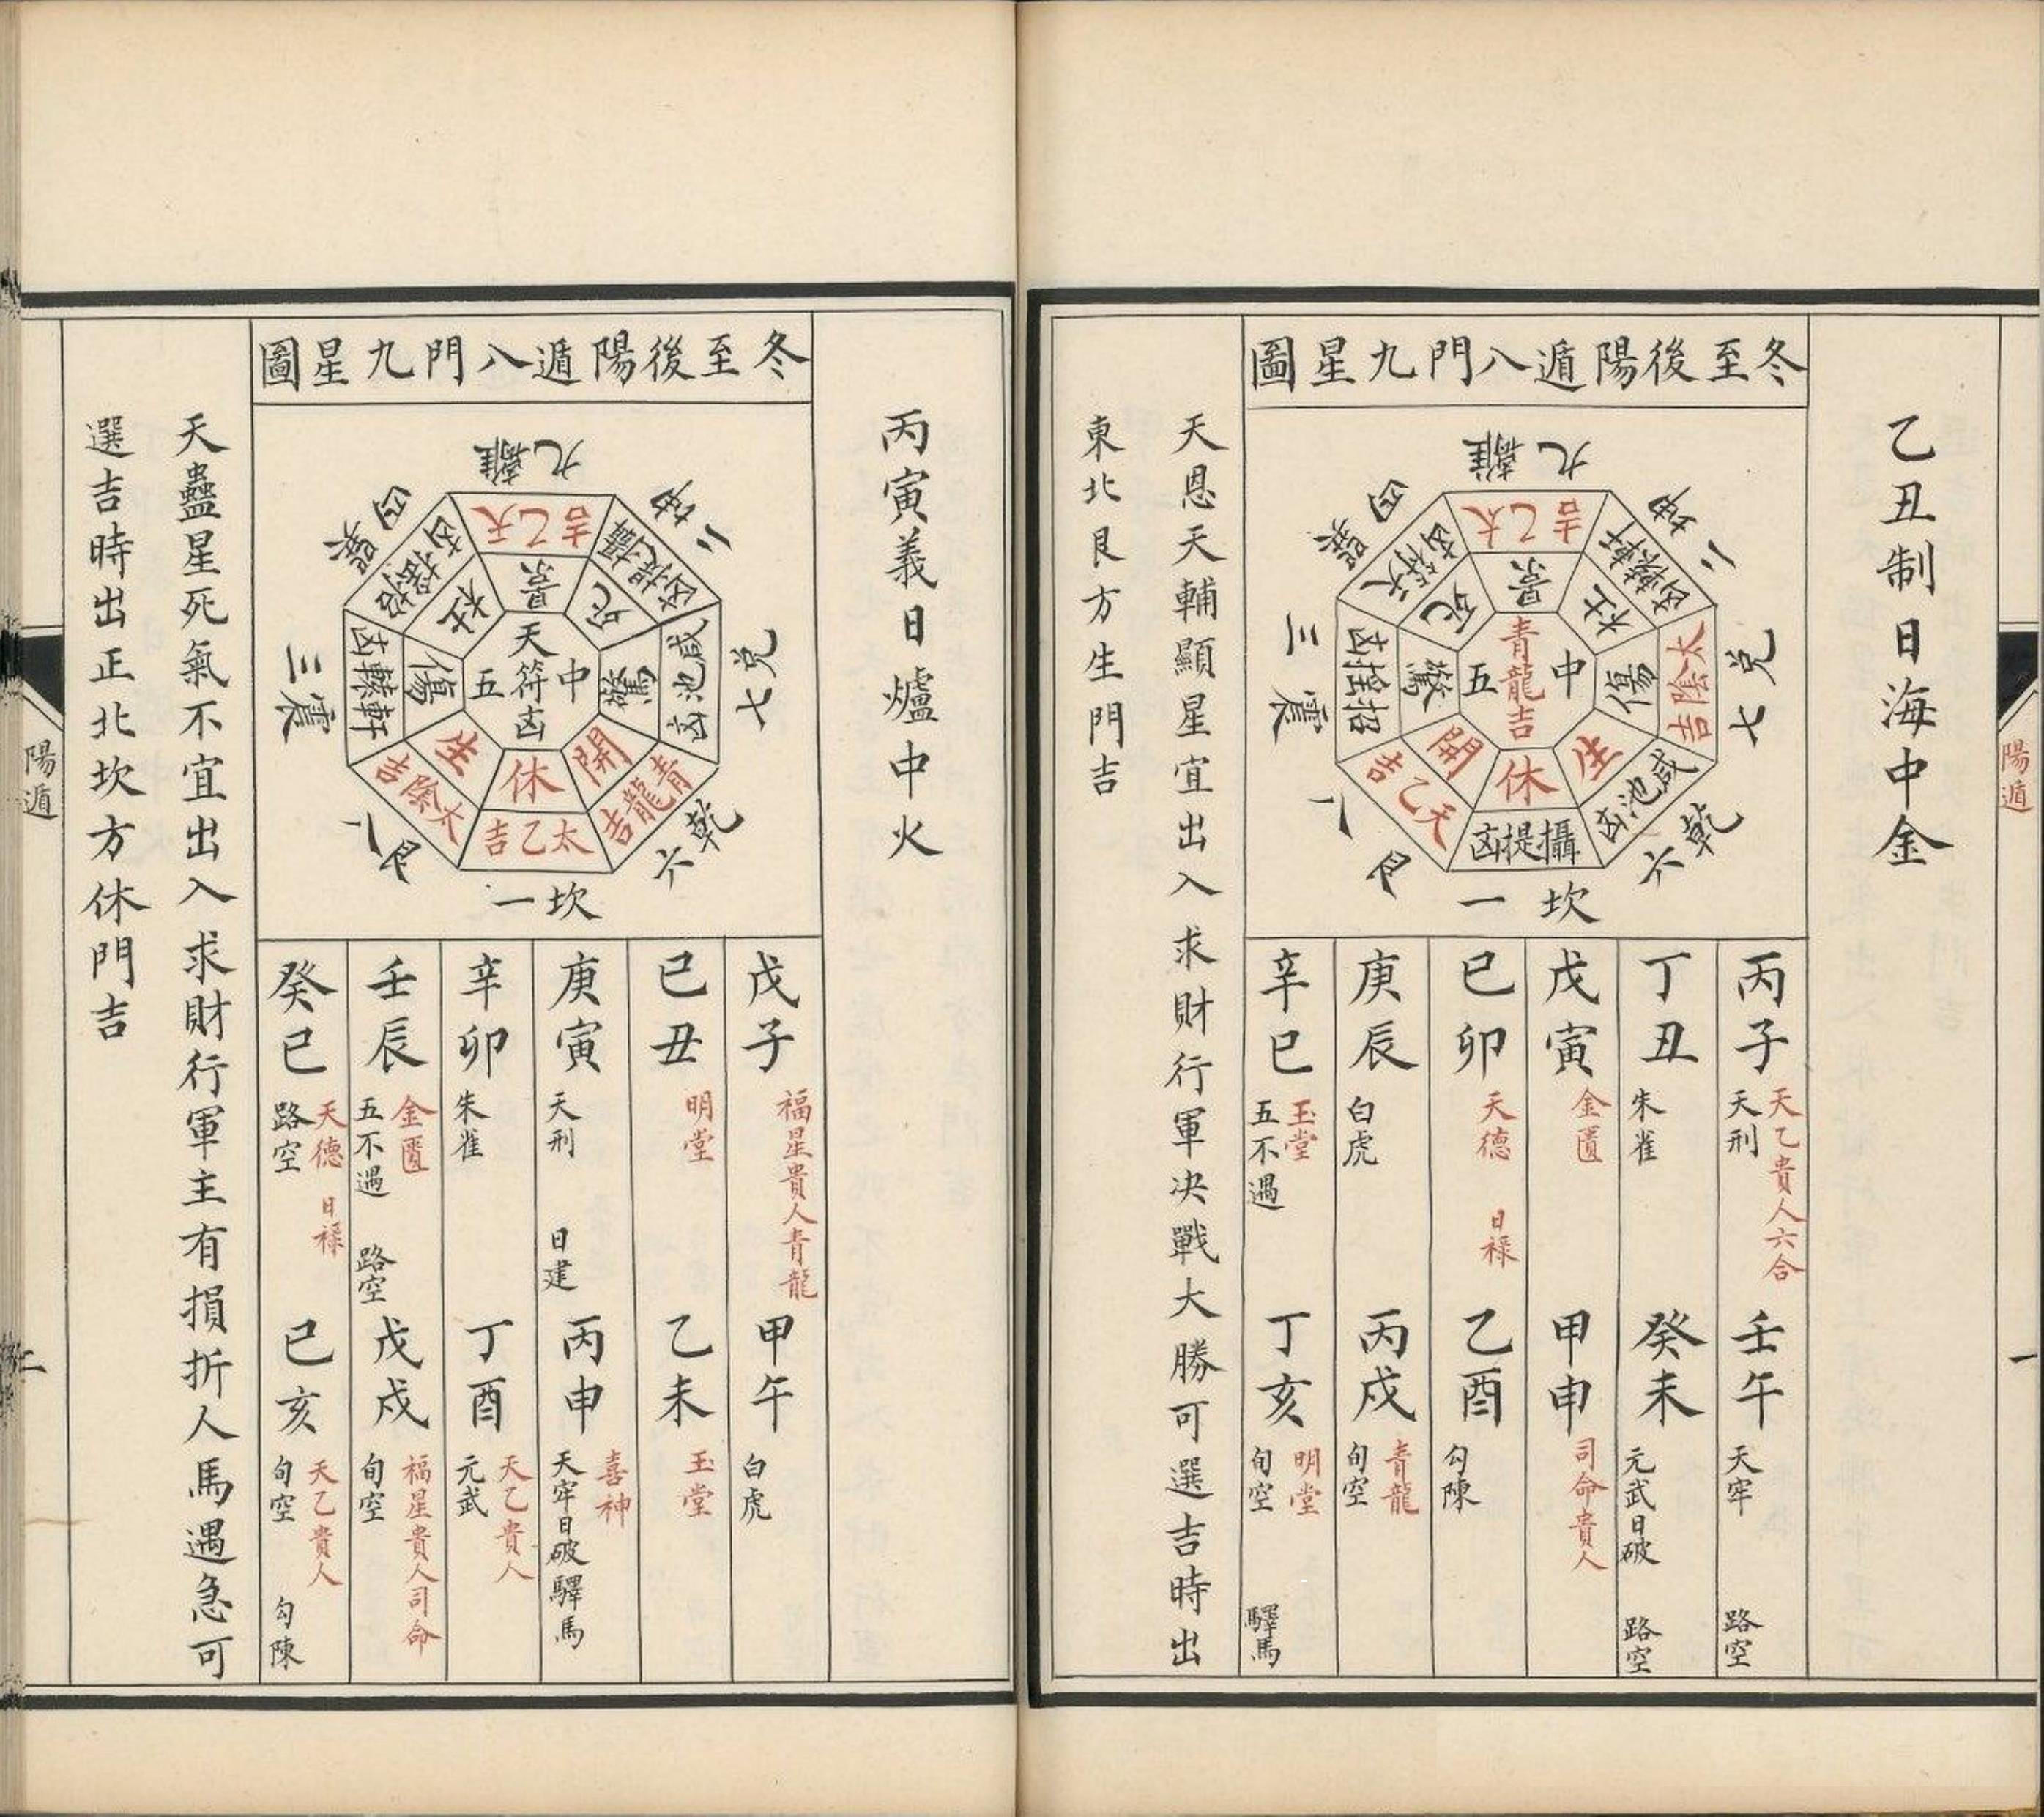 陽遁
一
乙丑制日海中金
冬至後陽遁八門九星圖
九離
二坤
兌七
乾六
坎一
艮八
三震
四巽
太乙吉
軒轅凶
太陰吉
咸池凶
攝提凶
天乙吉
招搖凶
天符凶
景
杜
傷
生
休
開
驚
死
中五
青龍吉
丙子
天乙貴人六合
天刑
壬午
天牢 路空
丁丑
朱雀
癸未
元武日破 路空
戊寅
金匱
甲申
司命貴人
己卯
天德 日祿
乙酉
勾陳
庚辰
白虎
丙戌
青龍
旬空
辛巳
玉堂
五不遇
丁亥
明堂
旬空 驛馬
天恩天輔顯星宜出入求財行軍决戰大勝可選吉時出
東北艮方生門吉
丙寅義日爐中火
冬至後陽遁八門九星圖
九離
二坤
兌七
乾六
坎一
艮八
三震
四巽
太乙吉
攝提凶
咸池凶
青龍吉
太乙吉
太陰吉
軒轅凶
招搖凶
景
死
驚
開
休
生
傷
杜
中五
天符凶
戊子
福星貴人青龍
甲午
白虎
己丑
明堂
乙未
玉堂
庚寅
天刑 日建
丙申
喜神
天牢日破驛馬
辛卯
朱雀
丁酉
天乙貴人
元武
壬辰
金匱
五不遇 路空
戊戌
福星貴人司命
旬空
癸巳
天德 日祿
路空
己亥
天乙貴人
旬空 勾陳
天蠱星死氣不宜出入求財行軍主有損折人馬遇急可
選吉時出正北坎方休門吉
陽遁
二